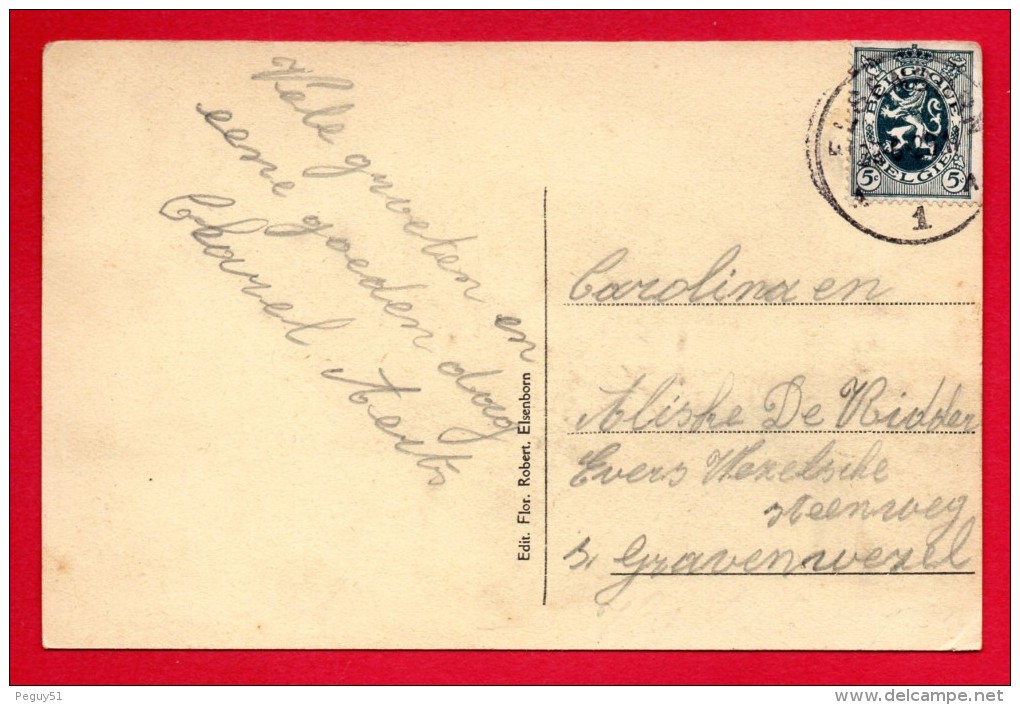 Vele groeten en
eene goeden dag
Charel Aerts
Edit. Flor. Robert. Elsenborn
BELGIQUE
BELGIË
5c 5c
1
Carolina en
Aliske De Ridder
Evers Wezelsche
steenweg
s, Gravenwezel
Peguy51
www.delcampe.net